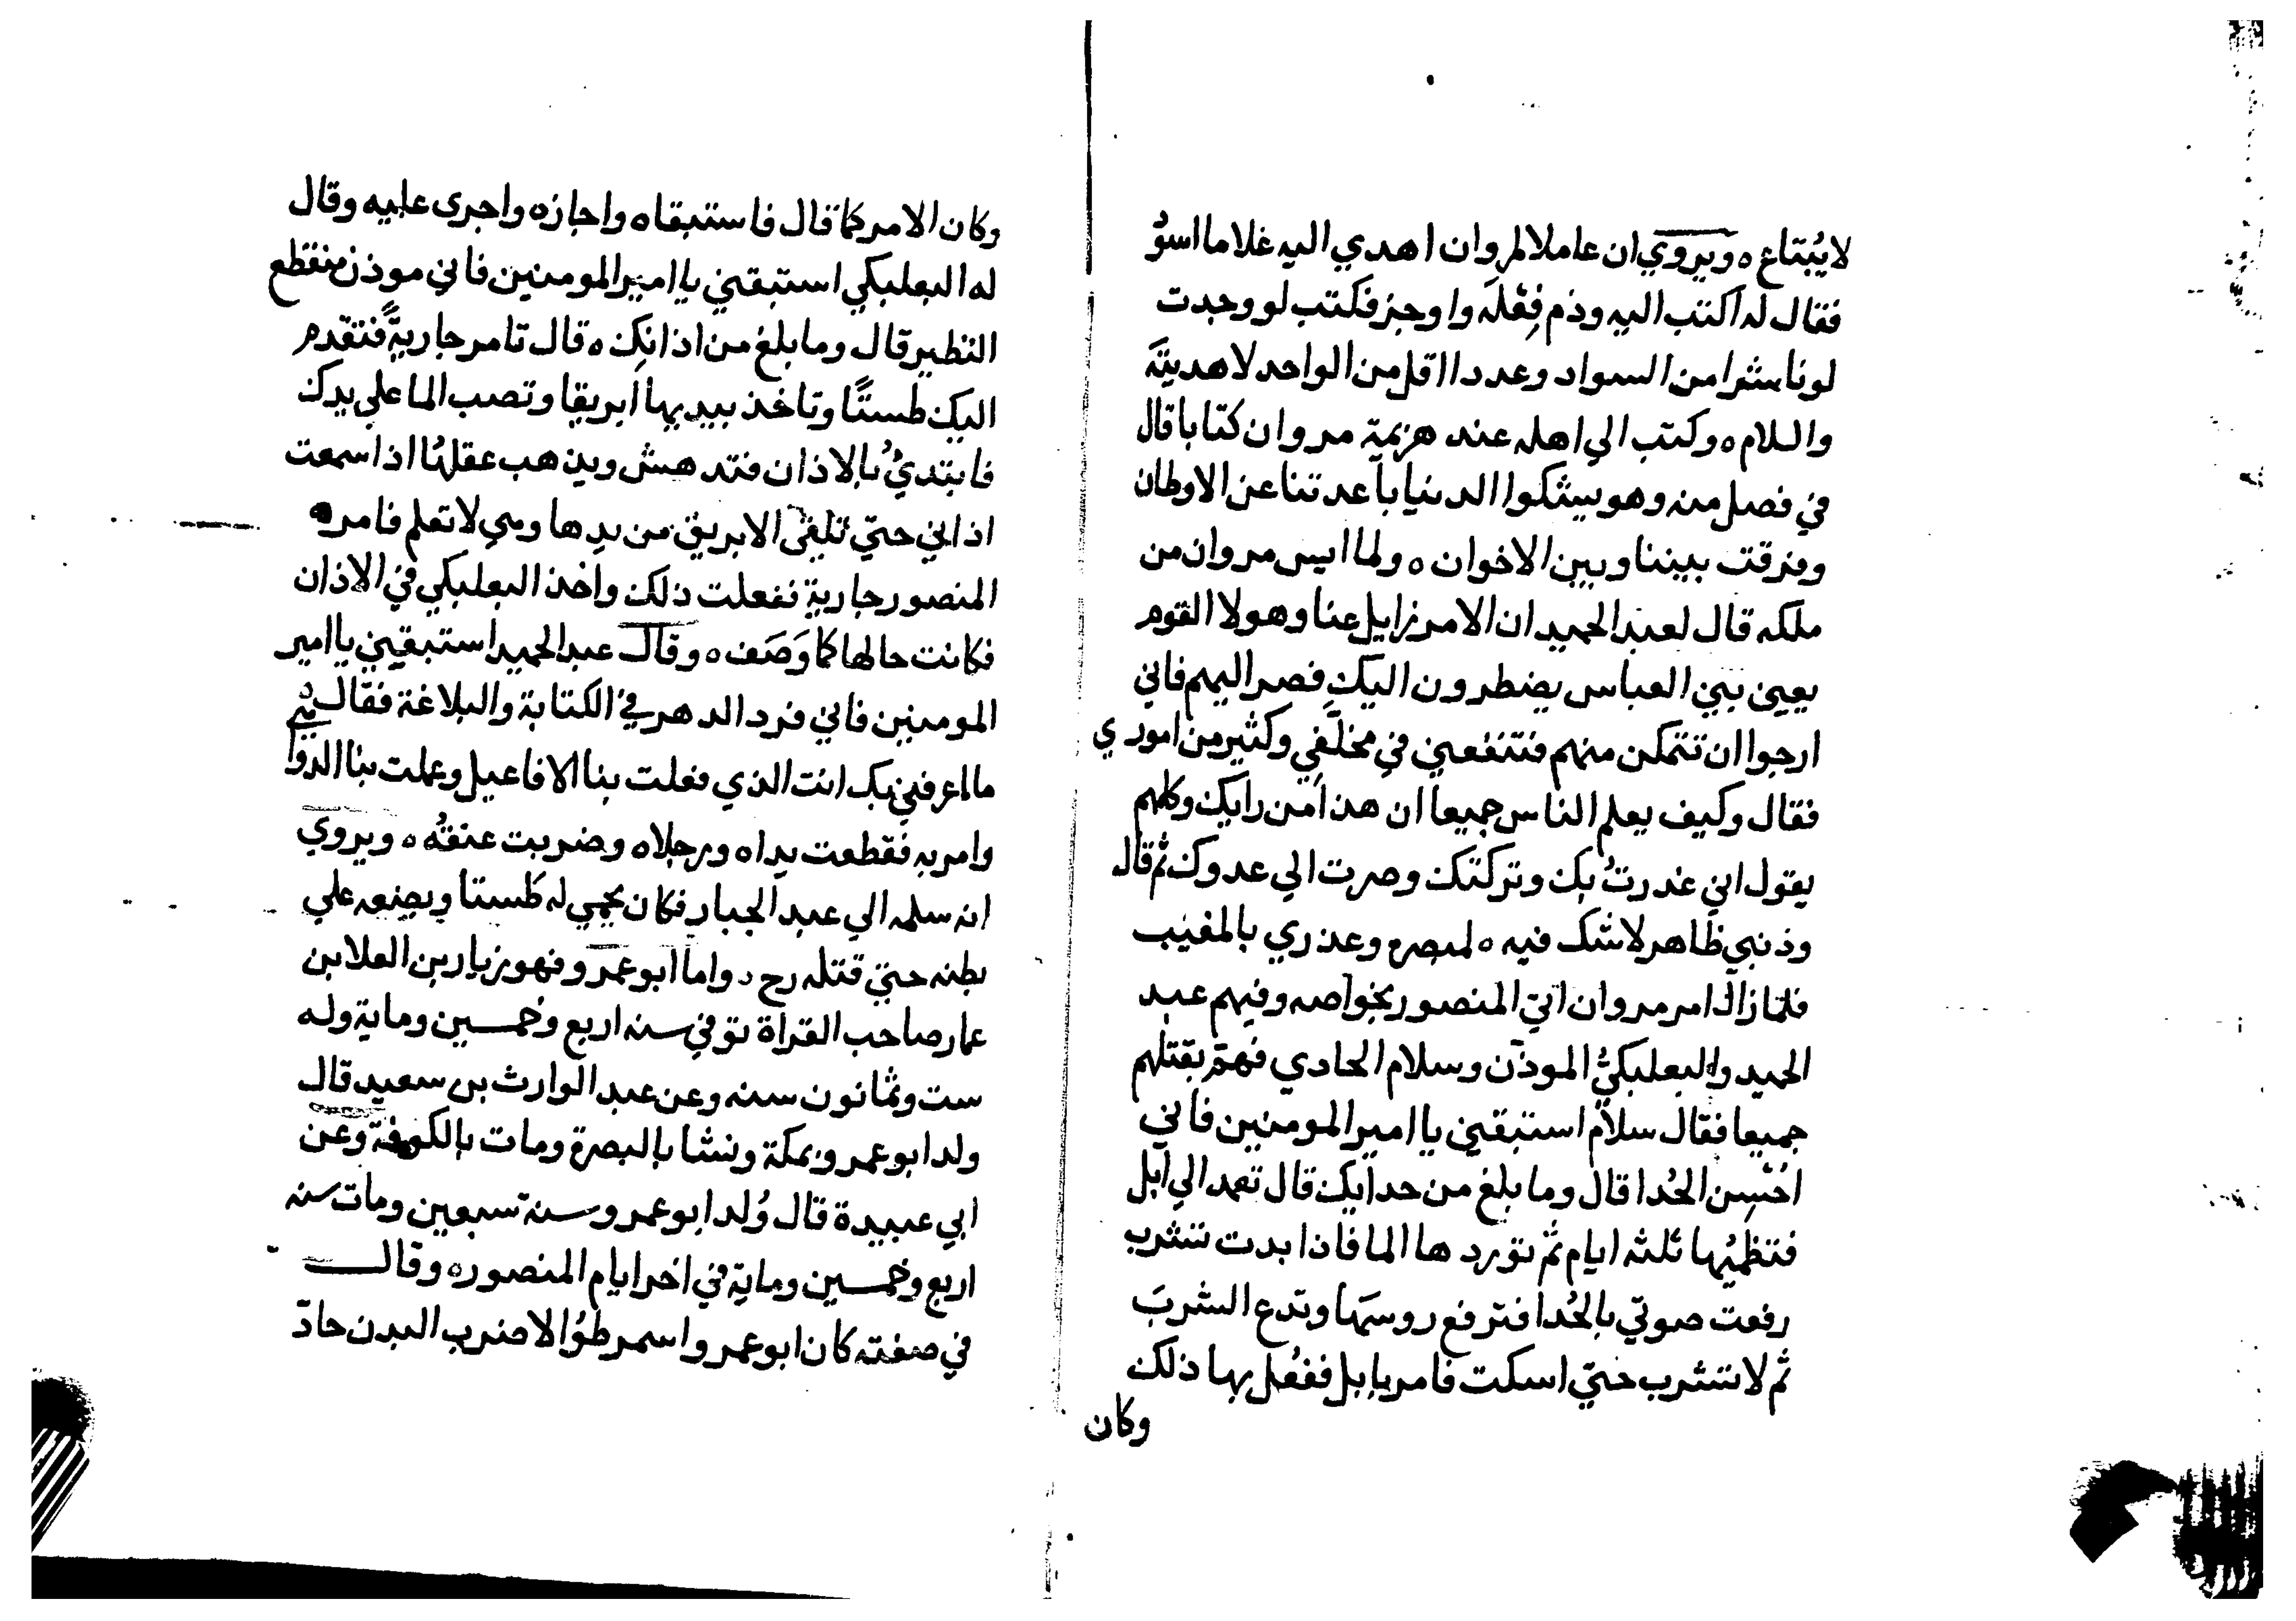 لا يُبتاع ه ويروي ان عاملا لمروان اهدي اليه غلاما اسوُ
فقال له اكتب اليه وذم فِعْله واوجز فكتب لو وجدت
لونا شرا من السواد وعددا اقل من الواحد لاهديتَه
والسلام ه وكتب الي اهله عند هزيمة مروان كتابا قال
في فصل منه وهو يشكوا الدنيا باعدتنا عن الاوطان
وفرقت بيننا وبين الاخوان ه ولما ايس مروان من
ملكه قال لعبد الحميد ان الامر زايل عنا وهولا القوم
يعني بني العباس يضطرون اليك فصر اليهم فاني
ارجوا ان تتمكن منهم فتنفعني في مخلَّفي وكثير من اموري
فقال وكيف يعلم الناس جميعا ان هذا من رايك وكلهم
يقول اني غدرتُ بك وتركتك وصرت الي عدوك ثم قال
وذنبي ظاهر لاشك فيه ه لمبصره وعذري بالمغيب
فلما زال امر مروان اتي المنصور بخواصه وفيهم عبد
الحميد والبعلبكيُّ الموذن وسلام الحادي فهمّ بقتلهم
جميعا فقال سلام استبقني يا امير المومنين فاني
احُسِن الحُدا قال وما بلغ من حدايك قال تعمد الي ابل
فتظميُها ثلثه ايام ثم توردها الما فاذا بدت تشرب
رفعت صوتي بالحُدا فترفع روسَها وتدع الشربَ
ثم لا تشرب حتي اسكت فامر بابل ففعُل بها ذلك
وكان
وكان الامر كما قال فاستبقاه واجازه واجرى عليه وقال
له البعلبكي استبقني يا امير المومنين فاني موذن منقطع
النظير قال وما بلغ من اذانك ه قال تامر جاريةً فتقدم
اليك طستًا وتاخذ بيديها ابريقا وتصب الما علي يدك
فابتديُ بالاذان فتدهش ويذهب عقلها اذا سمعت
اذاني حتي تلقى الابريق من يدها وهي لا تعلم فامر
المنصور جارية ففعلت ذلك واخذ البعلبكي في الاذان
فكانت حالها كما وَصَف ه وقال عبد الحميد استبقيني يا امير
المومنين فاني فرد الدهر في الكتابة والبلاغة فقال
ما اعرفني بك انت الذي فعلت بنا الافاعيل وعملت بنا الدوا
وامر به فقطعت يداه ورجلاه وضربت عنقُه ه ويروي
انه سلمه الي عبد الجبار فكان يحمي له طستا ويضعه علي
بطنه حتي قتله رح ، واما ابو عمرو فهو زبار بن العلا بن
عمار صاحب القراة توفي سنه اربع وخمسين وماية وله
ست وثمانون سنه وعن عبد الوارث بن سعيد قال
ولد ابو عمرو بمكة ونشا بالبصرة ومات بالكوفة وعن
ابي عبيدة قال وُلد ابو عمرو سنة سبعين ومات سنه
اربع وخمسين وماية في اخر ايام المنصور ه وقال
في صفته كان ابو عمرو اسمر طوُالا ضرب البدن حادّ